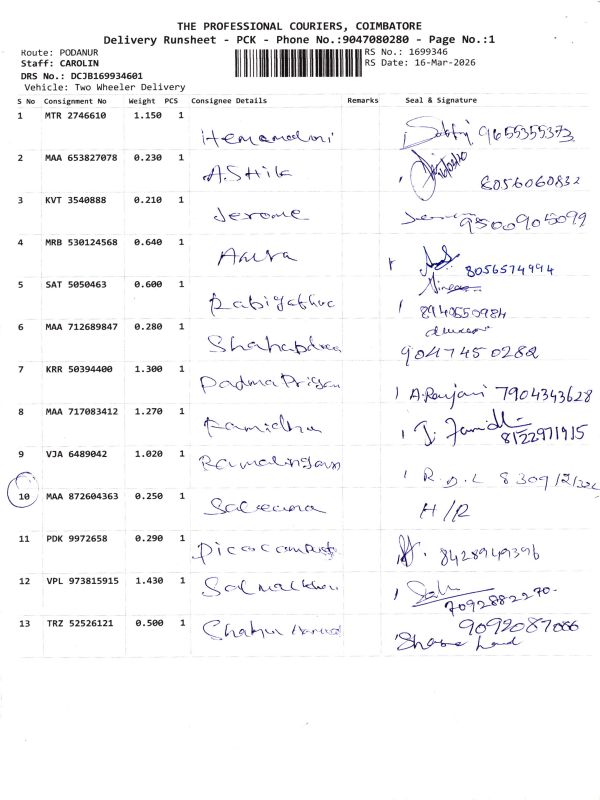 THE PROFESSIONAL COURIERS, COIMBATORE
Delivery Runsheet - PCK - Phone No.:9047080280 - Page No.:1
Route: PODANUR RS No.: 1699346
Staff: CAROLIN RS Date: 16-Mar-2026
DRS No.: DCJB169934601
Vehicle: Two Wheeler Delivery
S No Consignment No Weight PCS Consignee Details Remarks Seal & Signature
1 MTR 2746610 1.150 1
Hemamalini 9655355373
2 MAA 653827078 0.230 1
A.Shik 8056060832
3 KVT 3540888 0.210 1
Jerome 9500905099
4 MRB 530124568 0.640 1
8056574994
5 SAT 5050463 0.600 1
8940550984
6 MAA 712689847 0.280 1
9047450282
7 KRR 50394400 1.300 1
Padma Priyan A.Ranjani 7904343628
8 MAA 717083412 1.270 1
Ramidha 8122971915
9 VJA 6489042 1.020 1
Ramalingam R.D.L
10 MAA 872604363 0.250 1
H/R
11 PDK 9972658 0.290 1
8428949396
12 VPL 973815915 1.430 1
7092882270.
13 TRZ 52526121 0.500 1
9092087066